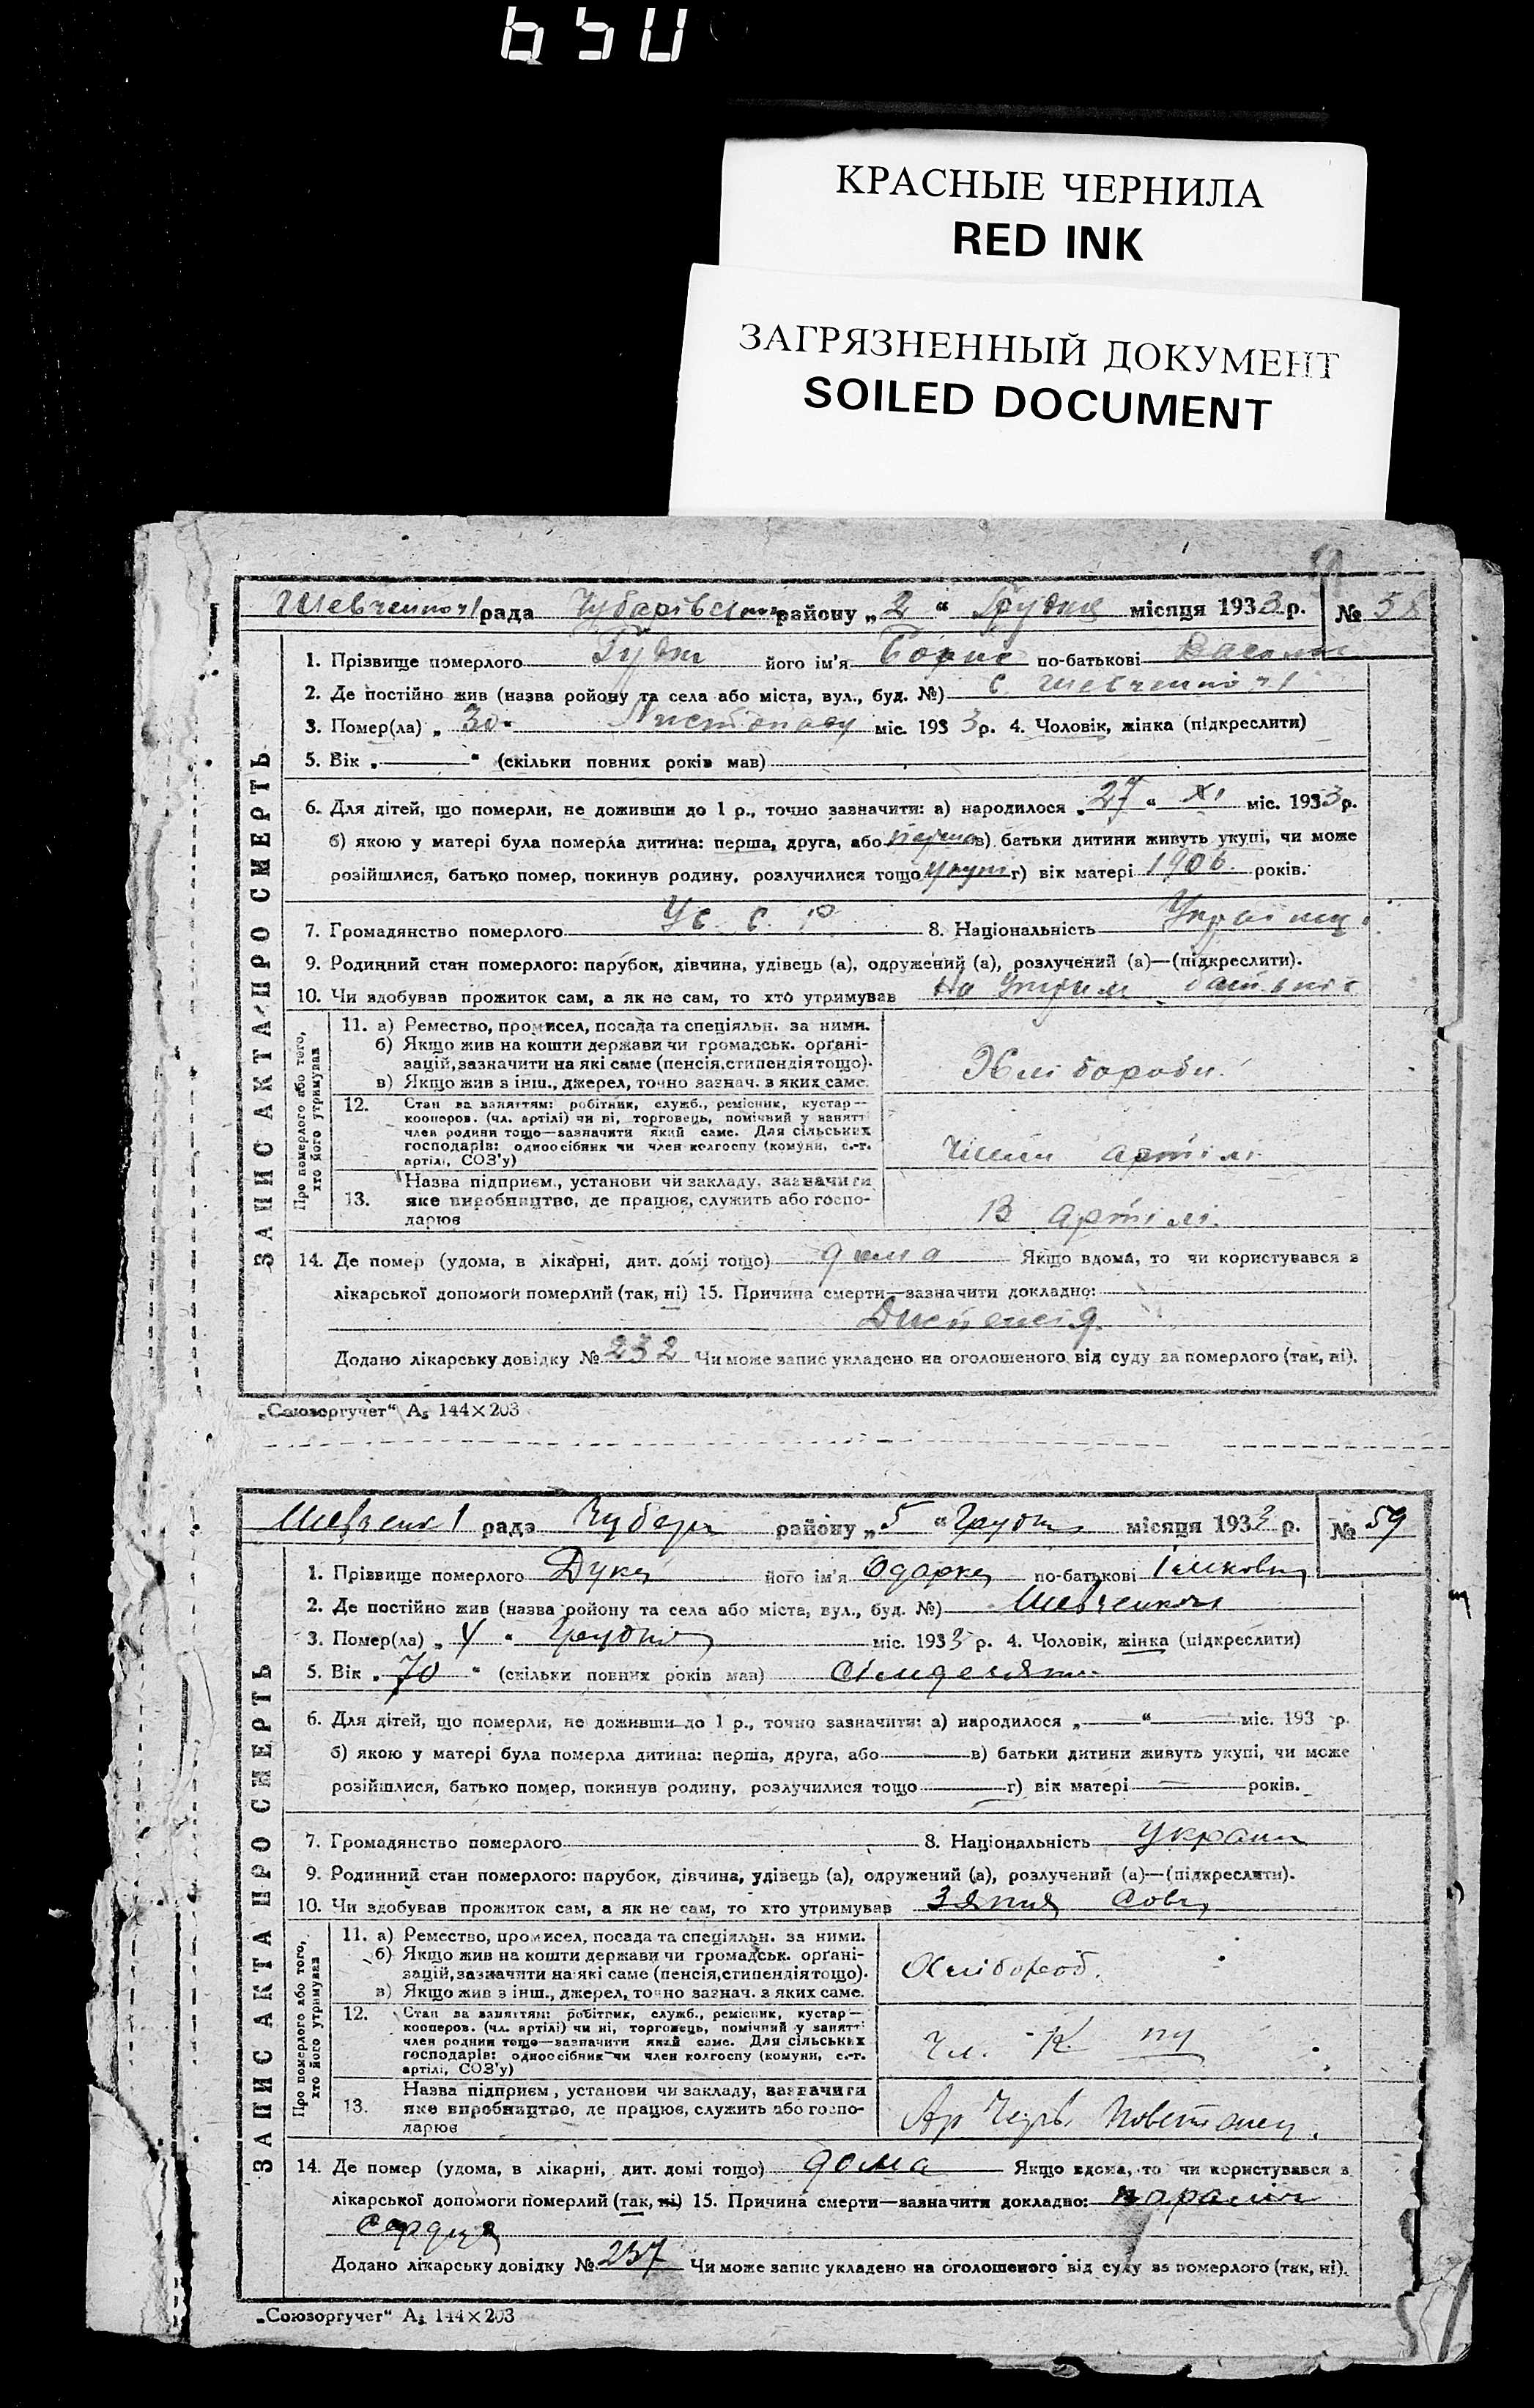 650
КРАСНЫЕ ЧЕРНИЛА
RED INK
ЗАГРЯЗНЕННЫЙ ДОКУМЕНТ
SOILED DOCUMENT
рада району „2“ Грудня місяця 1933 р. № 58
ЗАПИС АКТА ПРО СМЕРТЬ
1. Прізвище померлого його ім'я Борис по-батькові
2. Де постійно жив (назва ройону та села або міста, вул., буд. №) с.
3. Помер(ла) „30“ Листопаду міс. 1933 р. 4. Чоловік, жінка (підкреслити)
5. Вік „ “ (скільки повних років мав)
6. Для дітей, що померли, не доживши до 1 р., точно зазначити: а) народилося „27“ XI міс. 1933 р.
б) якою у матері була померла дитина: перша, друга, або перша в) батьки дитини живуть укупі, чи може
розійшлися, батько помер, покинув родину, розлучилися тощо укупі г) вік матері 1906 років.
7. Громадянство померлого У.С.С.Р. 8. Національність
9. Родинний стан померлого: парубок, дівчина, удівець (а), одружений (а), розлучений (а)—(підкреслити).
10. Чи здобував прожиток сам, а як не сам, то хто утримував На
Про померлого або того, хто його утримував
11. а) Ремество, промисел, посада та спеціяльн. за ними.
б) Якщо жив на кошти держави чи громадськ. орґані-
зацій, зазначити на які саме (пенсія, стипендія тощо).
в) Якщо жив з інш., джерел, точно зазнач. з яких саме.
Хлібороби.
12. Стан за заняттям: робітник, служб., ремісник, кустар—
кооперов. (чл. артілі) чи ні, торговець, помічний у занятті
член родини тощо—зазначити який саме. Для сільських
господарів: одноосібник чи член колгоспу (комуни, с.-г.
артілі, СОЗ'у)
члени артілі
13. Назва підприєм., установи чи закладу, зазначити
яке виробництво, де працює, служить або госпо-
дарює
В артілі.
14. Де помер (удома, в лікарні, дит. домі тощо) дома Якщо вдома, то чи користувався з
лікарської допомоги померлий (так, ні) 15. Причина смерти—зазначити докладно:
Додано лікарську довідку № 232 Чи може запис укладено на оголошеного від суду за померлого (так, ні).
„Союзоргучет“ А5 144×203
рада району „5“ місяця 1933 р. № 59
ЗАПИС АКТА ПРО СМЕРТЬ
1. Прізвище померлого Дука його ім'я Одарка по-батькові
2. Де постійно жив (назва ройону та села або міста, вул., буд. №)
3. Помер(ла) „4“ Грудня міс. 1933 р. 4. Чоловік, жінка (підкреслити)
5. Вік „70“ (скільки повних років мав) сімдесят
6. Для дітей, що померли, не доживши до 1 р., точно зазначити: а) народилося „ “ міс. 193 р.
б) якою у матері була померла дитина: перша, друга, або в) батьки дитини живуть укупі, чи може
розійшлися, батько помер, покинув родину, розлучилися тощо г) вік матері років.
7. Громадянство померлого 8. Національність
9. Родинний стан померлого: парубок, дівчина, удівець (а), одружений (а), розлучений (а)—(підкреслити).
10. Чи здобував прожиток сам, а як не сам, то хто утримував
Про померлого або того, хто його утримував
11. а) Ремество, промисел, посада та спеціяльн. за ними.
б) Якщо жив на кошти держави чи громадськ. орґані-
зацій, зазначити на які саме (пенсія, стипендія тощо).
в) Якщо жив з інш., джерел, точно зазнач. з яких саме.
Хлібороб.
12. Стан за заняттям: робітник, служб., ремісник, кустар—
кооперов. (чл. артілі) чи ні, торговець, помічний у занятті
член родини тощо—зазначити який саме. Для сільських
господарів: одноосібник чи член колгоспу (комуни, с.-г.
артілі, СОЗ'у)
Чл.
13. Назва підприєм., установи чи закладу, зазначити
яке виробництво, де працює, служить або госпо-
дарює
Ар Черв.
14. Де помер (удома, в лікарні, дит. домі тощо) дома Якщо вдома, то чи користувався з
лікарської допомоги померлий (так, ні) 15. Причина смерти—зазначити докладно: параліч
сердця
Додано лікарську довідку № 237 Чи може запис укладено на оголошеного від суду за померлого (так, ні).
„Союзоргучет“ А5 144×203